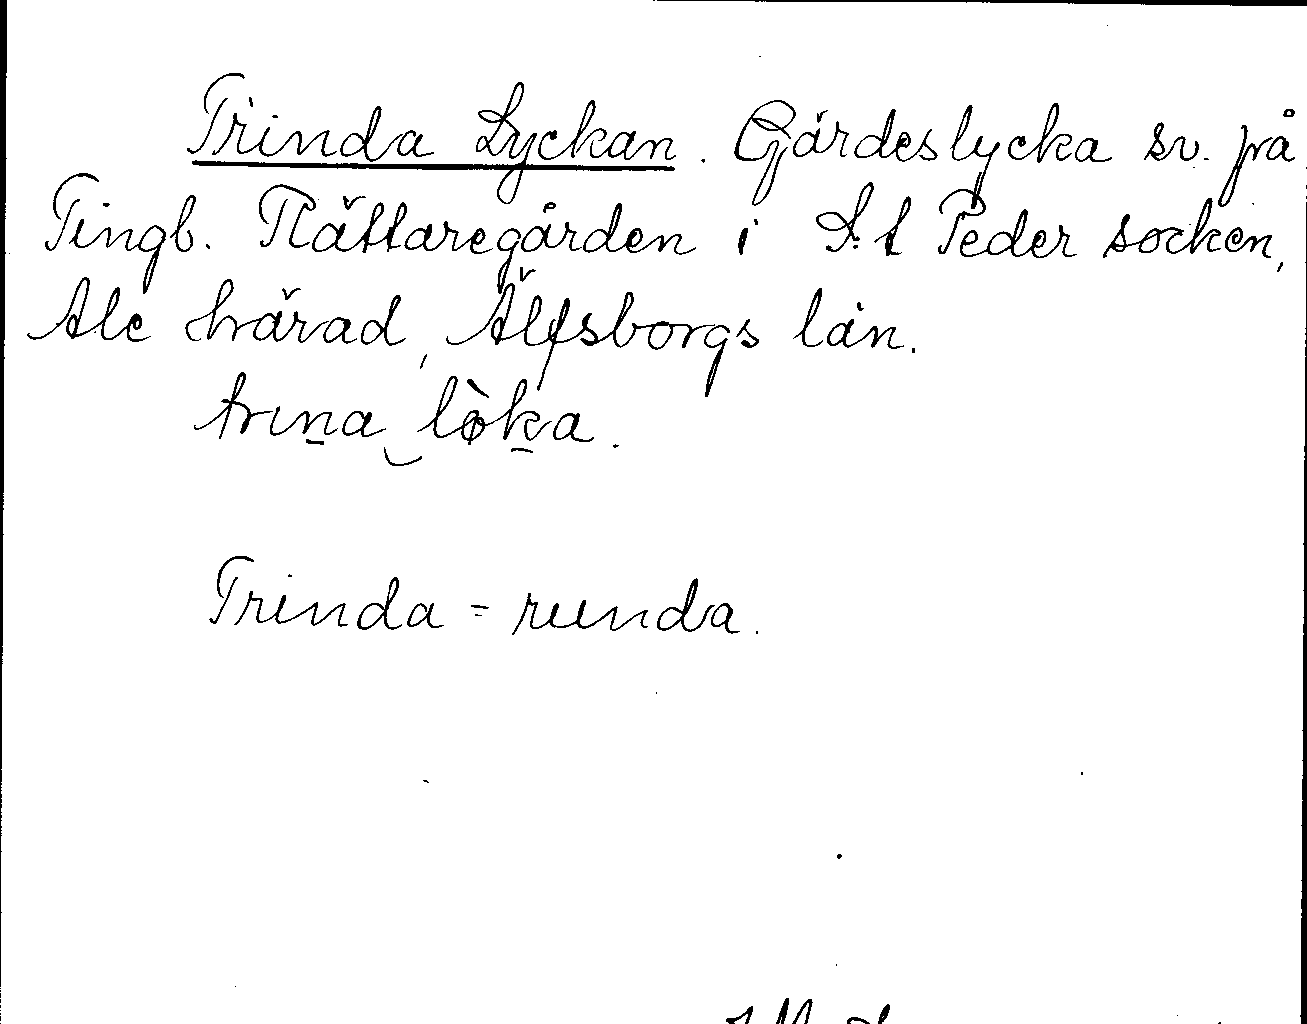 Trinda Lyckan. Gärdeslycka sv. på
Tingb. Rättaregården i S:t Peder socken,
Ale härad, Älfsborgs län.
trina lòka.
Trinda = runda.